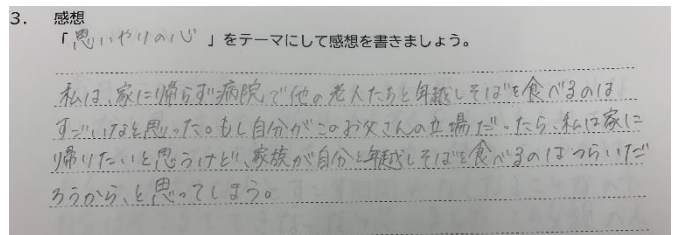 3. 感想
「思いやりの心」をテーマにして感想を書きましょう。
私は、家に帰らず病院で他の老人たちと年越しそばを食べるのは
すごいなと思った。もし自分がこのお父さんの立場だったら、私は家に
帰りたいと思うけど、家族が自分と年越しそばを食べるのはつらいだ
ろうから、と思ってしまう。